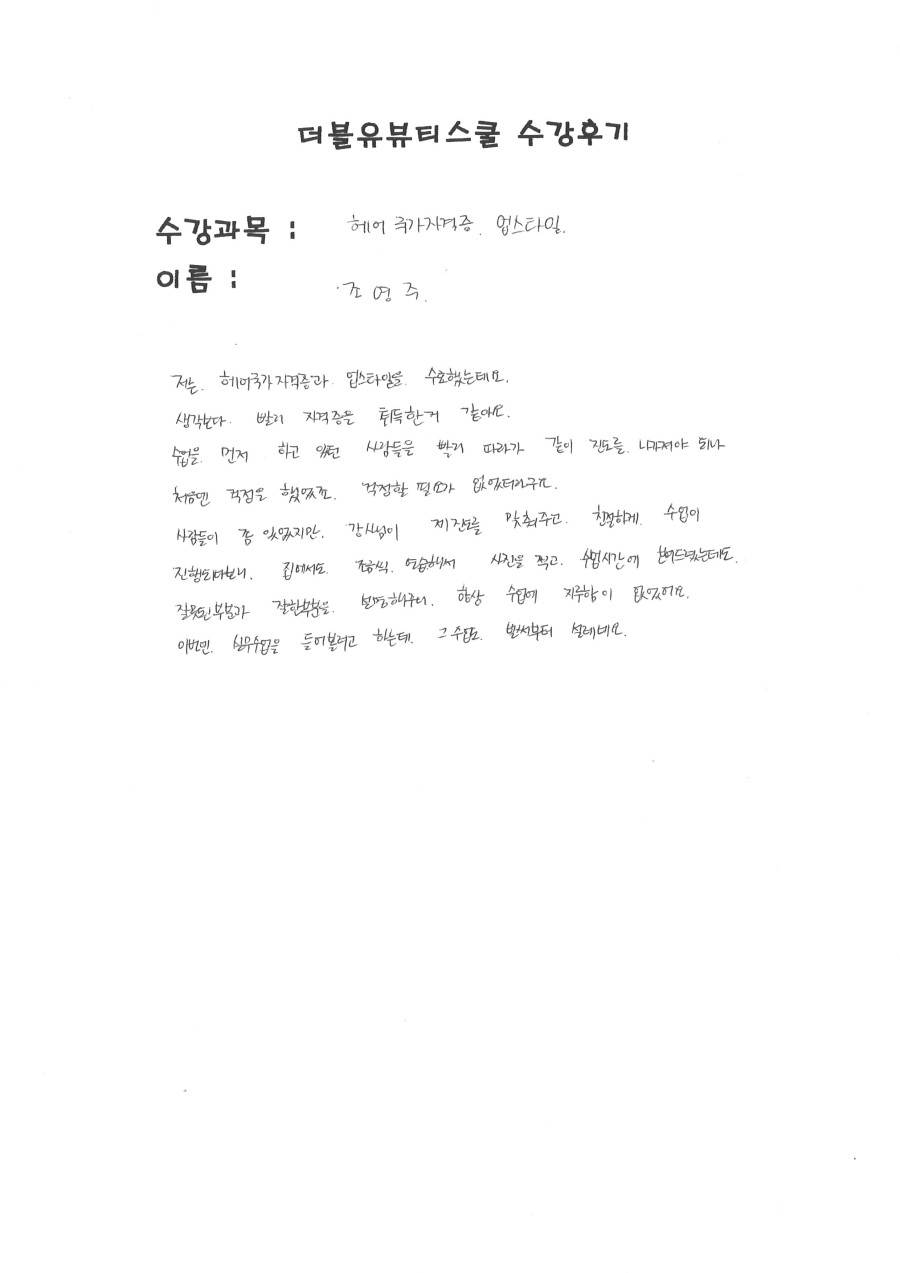 더블유뷰티스쿨 수강후기
수강과목 : 헤어 국가자격증. 업스타일.
이름 : 조영주.
저는. 헤어국가자격증과. 업스타일을. 수료했는데요.
생각보다. 빨리 자격증을 취득한거 같아요.
수업을. 먼저 하고 있던 사람들을 빨리 따라가 같이 진도를. 나가져야 되나
처음엔 걱정을 했었죠. 걱정할 필요가 없었더라구요.
사람들이 좀 있었지만. 강사님이 제진도를 맞춰주고. 친절하게. 수업이
진행되다보니. 집에서도. 조금씩. 연습해서 사진을 찍고. 수업시간에 보여드렸는데도.
잘못된부분과 잘한부분을. 설명해주니. 항상 수업에 지루함이 없었어요.
이번엔. 실무수업을 들어볼려고 하는데. 그수업도. 벌써부터 설레네요.